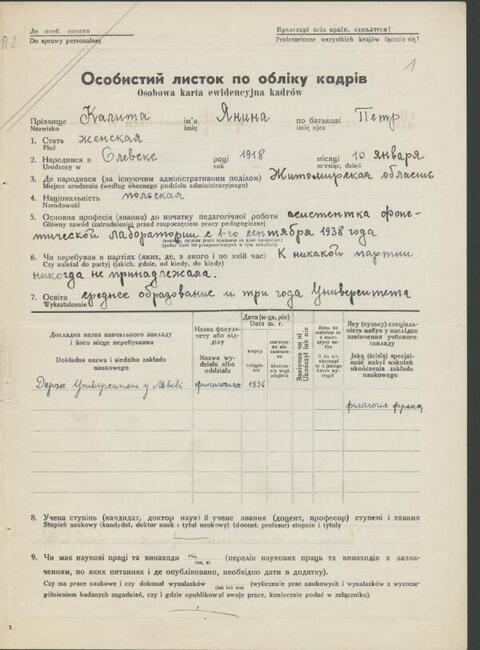 До особ. справи
Do sprawy personalnej
Пролетарі всіх країн, єднайтеся!
Proletariusze wszystkich krajów łączcie się!
1
Особистий листок по обліку кадрів
Osobowa karta ewidencyjna kadrów
Прізвище Калита ім'я Янина по батькові Петр
Nazwisko imię imię ojca
1. Стать женская
Płeć
2. Народився в Олевске році 1918 місяці 10 января
Urodzony w rok miesiąc, dzień
3. Де народився (за існуючим адміністративним поділом) Житомирская область
Miejsce urodzenia (według obecnego podziału administracyjnego)
4. Національність польская
Narodowość
5. Основна професія (звання) до початку педагогічної роботи асистентка фоне-
Główny zawód (zatrudnienie) przed rozpoczęciem pracy pedagogicznej
тической Лаборатории с 1-го сентября 1938 года
6. Чи перебував в партіях (яких, де, з якого і по який час) К никакой партии
Czy należał do partyj (jakich, gdzie, od kiedy, do kiedy)
никогда не принадлежала.
7. Освіта среднее образование и три года Университета
Wykształcenie
Докладна назва навчального закладу і його місце перебування
Dokładna nazwa i siedziba zakładu naukowego
Назва факультету або відділу
Nazwa wydziału albo oddziału
Дата (м-ця, рік)
Data m. r.
вступу
Закінчив чи ні
Ukończył lub nie
Яку (вузьку) спеціальність набув у наслідок закінчення учбового закладу
Jaką (ścisłą) specjalność nabył wskutek ukończenia zakładu naukowego
Держ Университет у Львові філологія 1936
філологія франц
8. Учена ступінь (кандидат, доктор наук) й учене звання (доцент, професор) ступені і звання
Stopień naukowy (kandydat, doktor nauk i tytuł naukowy) (docent, profesor) stopnie i tytuły
9. Чи має наукові праці та винаходи ні (перелік наукових праць та винаходів з зазна-
ченням, по яких питаннях і де опубліковано, необхідно дати в додатку).
Czy ma prace naukowe i czy dokonał wynalazków (tak lub nie) (wyliczenie prac naukowych i wynalazków z wyszcze-
gólnieniem badanych zagadnień, czy i gdzie opublikował swoje prace, koniecznie podać w załączniku).